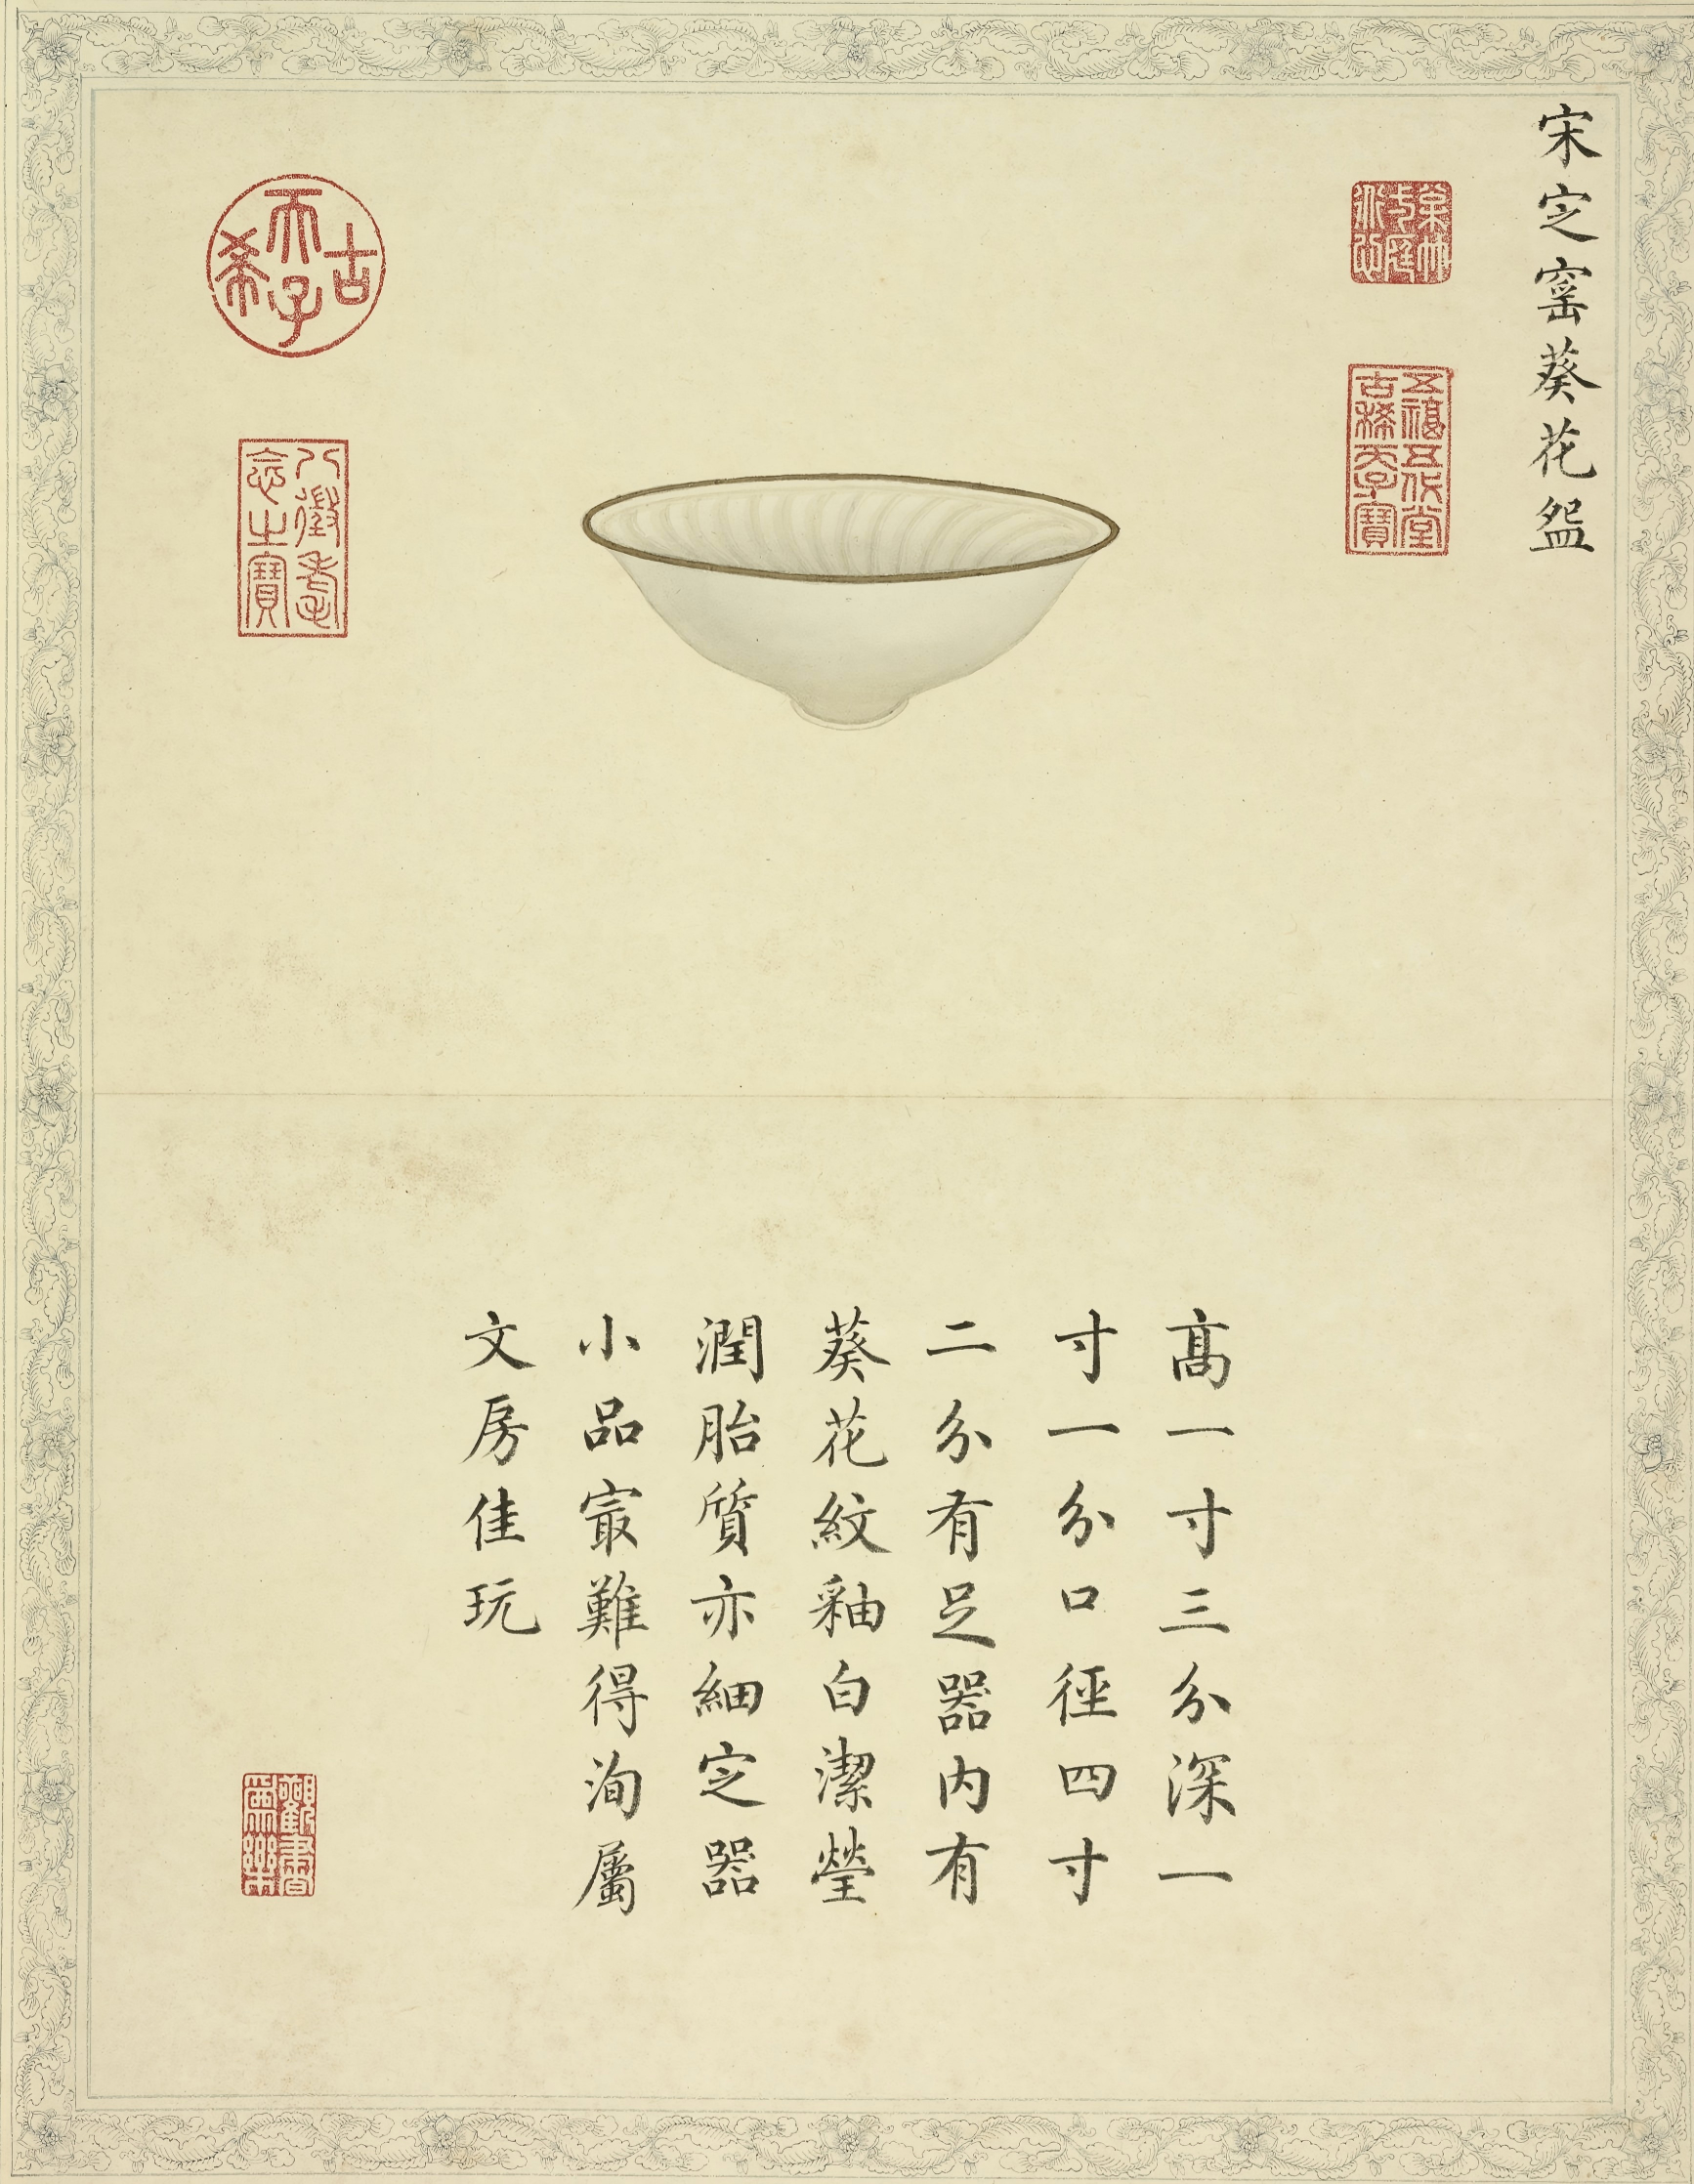 宋定窰葵花盌
五福五代堂古稀天子寶
古希天子
八徵耄念之寶
高一寸三分深一
寸一分口徑四寸
二分有足器内有
葵花紋釉白潔瑩
潤胎質亦細定器
小品㝡難得洵屬
文房佳玩
觀書爲樂